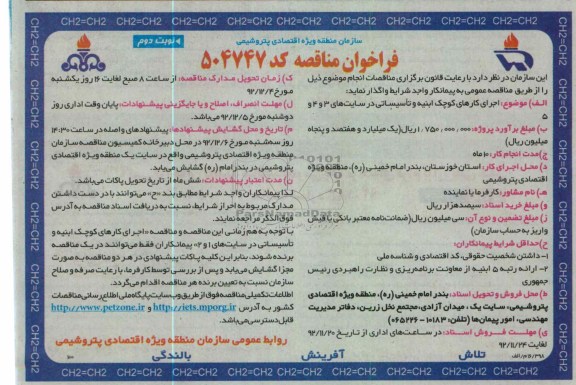 سازمان منطقه ویژه اقتصادی پتروشیمی
نوبت دوم
فراخوان مناقصه کد ۵۰۴۷۴۷
این سازمان در نظر دارد با رعایت قانون برگزاری مناقصات انجام موضوع ذیل
را از طریق مناقصه عمومی به پیمانکار واجد شرایط واگذار نماید:
الف) موضوع: اجرای کارهای کوچک ابنیه و تأسیساتی در سایت های ۳ و ۴ و
۵
ب) مبلغ برآورد پروژه: ۱،۷۵۰،۰۰۰،۰۰۰ ریال (یک میلیارد و هفتصد و پنجاه
میلیون ریال)
ج) مدت انجام کار: ۱۰ ماه
د) محل اجرای کار: استان خوزستان، بندر امام خمینی (ره)، منطقه ویژه
اقتصادی پتروشیمی
ه) نام مشاور: کارفرما یا نماینده
و) مبلغ خرید اسناد: سیصد هزار ریال
ز) مبلغ تضمین و نوع آن: سی میلیون ریال (ضمانت نامه معتبر بانکی یا فیش
واریز به حساب سازمان)
ح) حداقل شرایط پیمانکاران:
۱- داشتن شخصیت حقوقی، کد اقتصادی و شناسه ملی
۲- ارائه رتبه ۵ ابنیه از معاونت برنامه ریزی و نظارت راهبردی رئیس
جمهوری
ط) محل فروش و تحویل اسناد: بندر امام خمینی (ره)، منطقه ویژه اقتصادی
پتروشیمی، سایت یک، میدان آزادی، مجتمع نخل زرین، دفاتر مدیریت
مهندسی، امور پیمان ها (تلفن: ۱۰۱۸۳-۰۶۵۲۲۶)
ی) مهلت فروش اسناد: در ساعت های اداری از تاریخ ۹۲/۱۱/۲۰
لغایت ۹۲/۱۱/۲۴
ک) زمان تحویل مدارک مناقصه: از ساعت ۸ صبح لغایت ۱۶ روز یکشنبه
مورخ ۹۲/۱۲/۴
ل) مهلت انصراف، اصلاح و یا جایگزینی پیشنهادات: پایان وقت اداری روز
دوشنبه مورخ ۹۲/۱۲/۵ می باشد.
م) تاریخ و محل گشایش پیشنهادها: پیشنهادهای واصله در ساعت ۱۴:۳۰
روز سه شنبه مورخ ۹۲/۱۲/۶ در محل دبیرخانه کمیسیون مناقصه سازمان
منطقه ویژه اقتصادی پتروشیمی واقع در سایت یک منطقه ویژه اقتصادی
پتروشیمی در بندر امام (ره) گشایش می یابد.
ن) مدت اعتبار پیشنهادات: شش ماه از تاریخ تحویل پاکات می باشد.
لذا پیمانکاران واجد شرایط مطابق بند «ح» می توانند با در دست داشتن
مدارک مربوط به احراز شرایط، نسبت به دریافت اسناد مناقصه به آدرس
فوق الذکر مراجعه نمایند.
با توجه به هم زمانی این مناقصه و مناقصه «اجرای کارهای کوچک ابنیه و
تأسیساتی در سایت های ۱ و ۲» پیمانکاران فقط می توانند در یک مناقصه
برنده شوند. بنابر این کلیه پاکات پیشنهادی در هر دو مناقصه به صورت
مجزا گشایش می یابد و پس از بررسی توسط کارفرما، با رعایت صرفه و صلاح
سازمان نسبت به تعیین برنده هر مناقصه اقدام می گردد.
اطلاعات تکمیلی مناقصه فوق از طریق وب سایت پایگاه ملی اطلاع رسانی مناقصات
کشور به آدرس http://iets.mporg.ir و http://www.petzone.ir
قابل دسترسی می باشد.
روابط عمومی سازمان منطقه ویژه اقتصادی پتروشیمی
تلاش آفرینش بالندگی
ParsNamadData
CH2=CH2